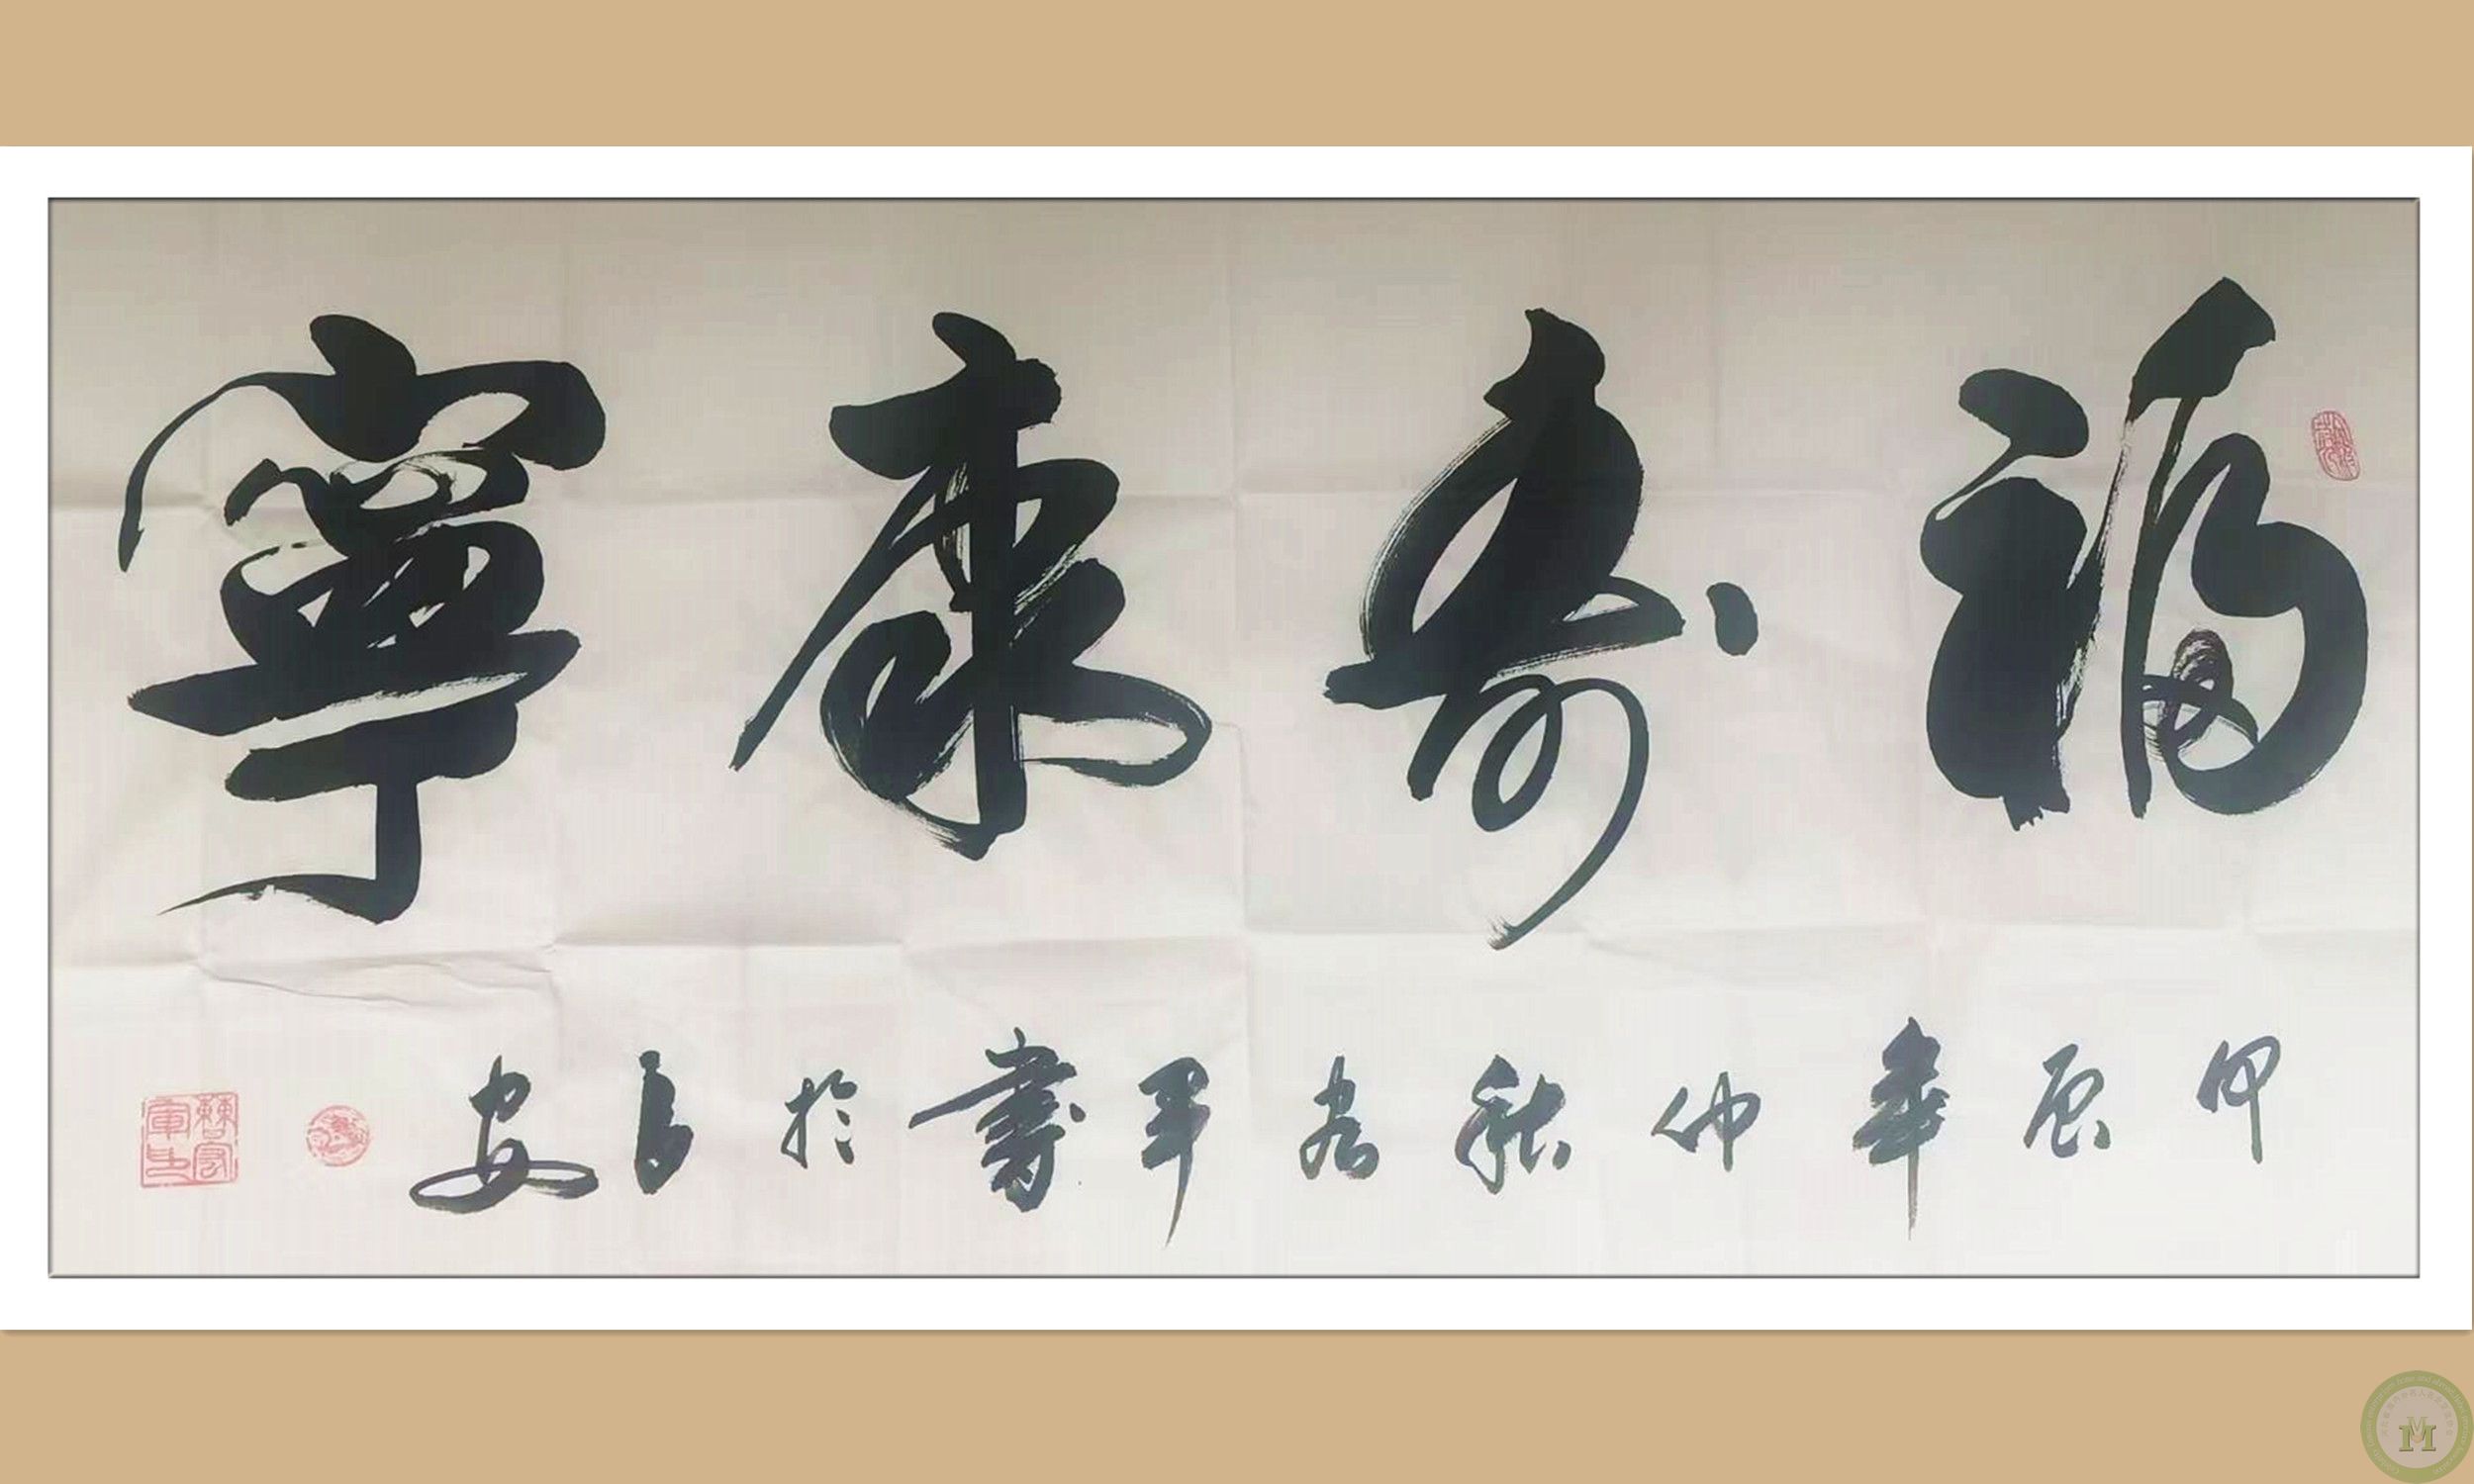 福壽康寧
甲辰年仲秋宏軍書於長安